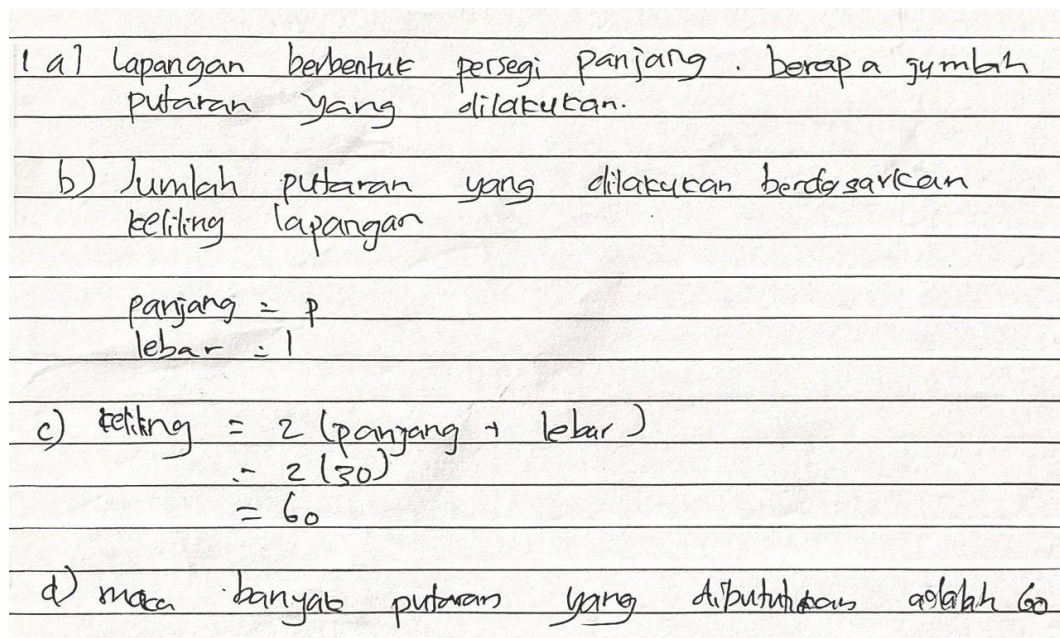 1 a] Lapangan berbentuk persegi panjang. berapa jumlah
putaran yang dilakukan.
b) Jumlah putaran yang dilakukan berdasarkan
keliling lapangan
panjang = p
lebar = l
c) keliling = 2 (panjang + lebar)
= 2 (30)
= 60
d) maka banyak putaran yang dibutuhkan adalah 60